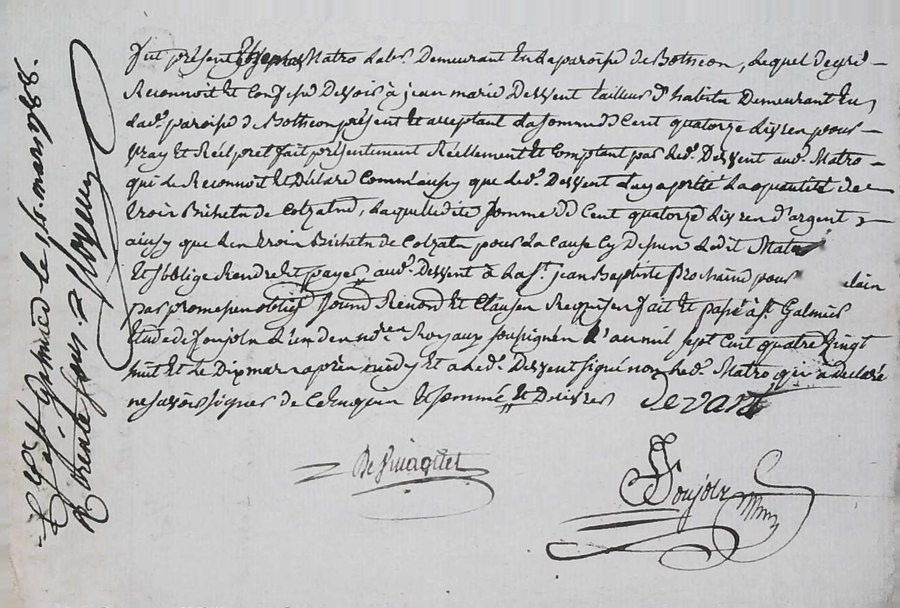 fut présent Matro lab.r Demeurant en la paroisse de Bothéon, lequel de gré
Reconnoit et Confesse Devoir à jean marie Dessent tailleur d'habits Demeurant en
lad.e paroisse de Bothéon présent et acceptant la somme de Cent quatorze livres pour
vray et Réel pret fait présentement Réellement et Comptant par led.t Dessent aud.t Matro
qui le Reconnoit et Déclare Comm'aussy que led.t Dessent luy a pretté la quantité de
trois Bichets de Colzats, laquelle dite somme de Cent quatorze livres d'argent
ainsy que les trois Bichets de Colzats pour la Cause Cy Dessus ledit Matro
s'oblige Rendre et payer aud.t Dessent à la S.t jean Baptiste prochaine pour
par promesse oblig.n Renonc.e et Clauses Requises fait et passé à S.t Galmier
Etude de Soujols L'un des no.res Royaux soussignés L'an mil sept Cent quatre vingt
huit et le Dix mars après midy et a led.t Dessent signé non led.t Matro qui a Déclaré
ne savoir signer de Ce Enquis et sommé
Devant
Soujols
S.t Galmier le 15 mars 1788.
Trente sous